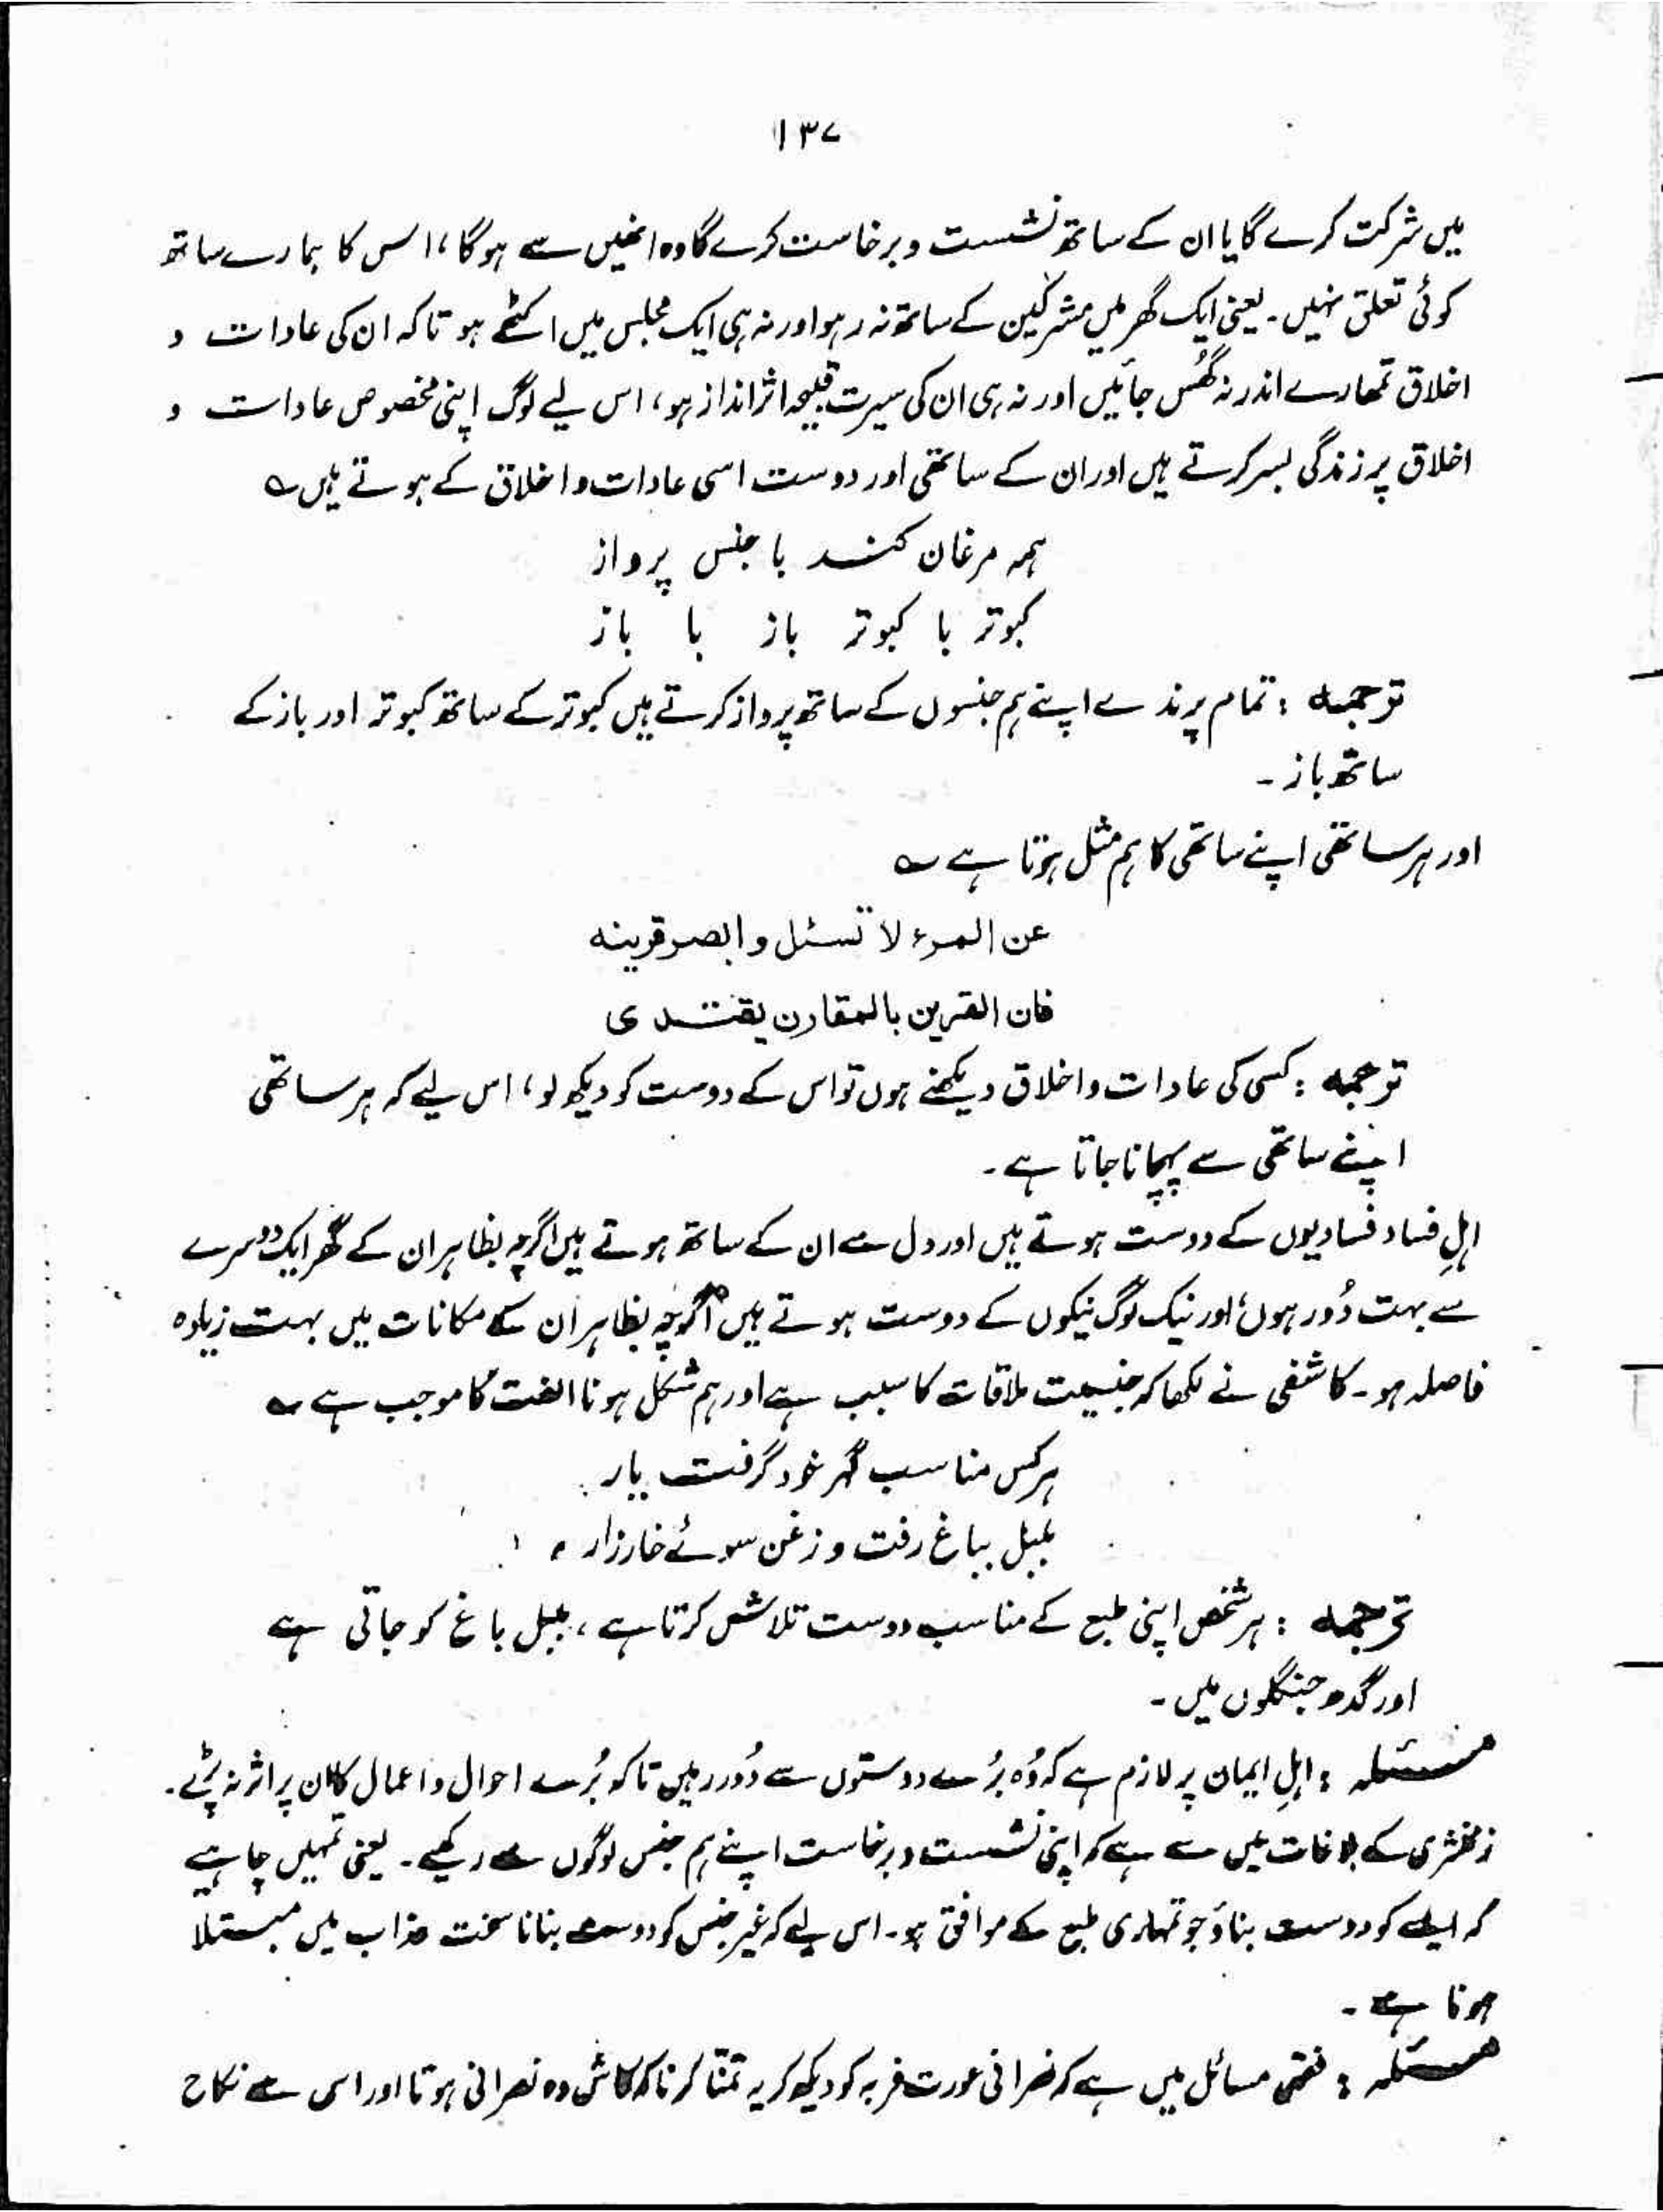 ۱۳۷
میں شرکت کرے گا یا ان کے ساتھ نشست و برخاست کرے گا وہ انھیں سے ہوگا، اس کا ہمارے ساتھ
کوئی تعلق نہیں۔ یعنی ایک گھر میں مشرکین کے ساتھ نہ رہو اور نہ ہی ایک مجلس میں اکٹھے ہو تاکہ ان کی عادات و
اخلاق تمھارے اندر نہ گھُس جائیں اور نہ ہی ان کی سیرت قبیحہ اثر انداز ہو، اس لیے لوگ اپنی مخصوص عادات و
اخلاق پر زندگی بسر کرتے ہیں اور ان کے ساتھی اور دوست اسی عادات و اخلاق کے ہوتے ہیں ؎
ہمہ مرغان کنند با جنس پرواز
کبوتر با کبوتر باز با باز
ترجمہ : تمام پرندے اپنے ہم جنسوں کے ساتھ پرواز کرتے ہیں کبوتر کے ساتھ کبوتر اور باز کے
ساتھ باز ۔
اور ہر ساتھی اپنے ساتھی کا ہم مثل ہوتا ہے ؎
عن المرء لا تسئل وابصر قرینہ
فان القرین بالمقارن یقتدی
ترجمہ : کسی کی عادات و اخلاق دیکھنے ہوں تو اس کے دوست کو دیکھ لو، اس لیے کہ ہر ساتھی
اپنے ساتھی سے پہچانا جاتا ہے۔
اہلِ فساد فسادیوں کے دوست ہوتے ہیں اور دل سے ان کے ساتھ ہوتے ہیں اگرچہ بظاہر ان کے گھر ایک دوسرے
سے بہت دُور ہوں، اور نیک لوگ نیکوں کے دوست ہوتے ہیں اگرچہ بظاہر ان کے مکانات میں بہت زیادہ
فاصلہ ہو۔ کاشفی نے لکھا کہ جنسیت ملاقات کا سبب ہے اور ہم شکل ہونا الفت کا موجب ہے ؎
ہر کس مناسب گہر خود گرفت یار
بلبل بباغ رفت و زغن سوئے خارزار
ترجمہ : ہر شخص اپنی طبع کے مناسب دوست تلاش کرتا ہے، بلبل باغ کو جاتی ہے
اور گدھ جنگلوں میں۔
مسئلہ : اہلِ ایمان پر لازم ہے کہ وُہ بُرے دوستوں سے دُور رہیں تاکہ بُرے احوال و اعمال کا ان پر اثر نہ پڑے۔
زمخشری کے بلاغات میں سے ہے کہ اپنی نشست و برخاست اپنے ہم جنس لوگوں سے رکھیے۔ یعنی تمہیں چاہیے
کہ ایسے کو دوست بناؤ جو تمہاری طبع کے موافق ہو۔ اس لیے کہ غیر جنس کو دوست بنانا سخت عذاب میں مبتلا
ہونا ہے ۔
مسئلہ : فقہی مسائل میں ہے کہ نصرانی عورت فربہ کو دیکھ کر یہ تمنّا کرنا کہ کاش وہ نصرانی ہوتا اور اس سے نکاح